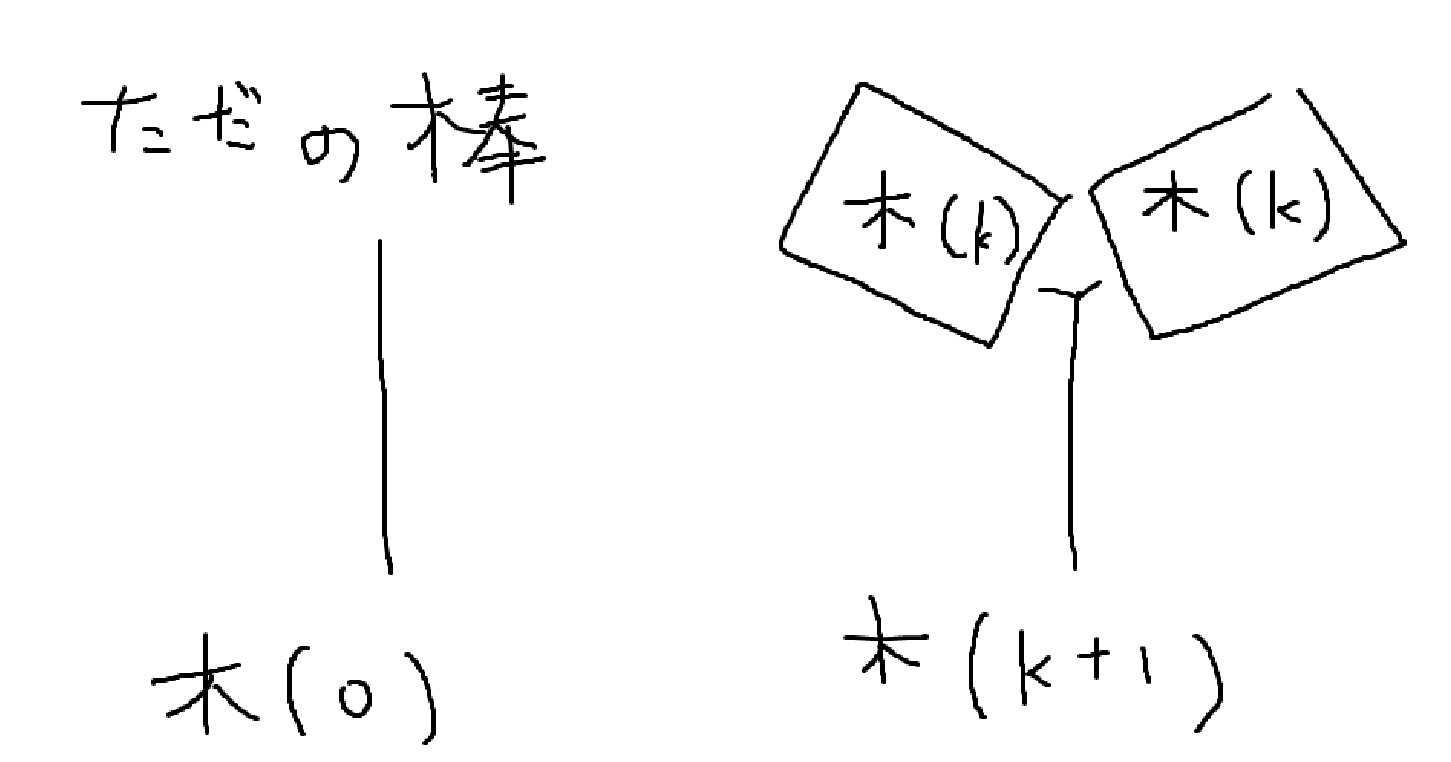 ただの棒
木(k)
木(k)
木(0)
木(k+1)